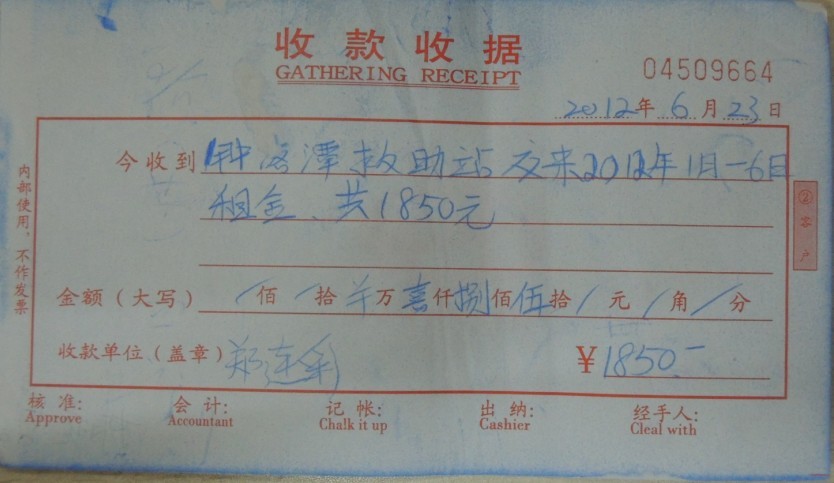 收款收据
GATHERING RECEIPT
04509664
2012年6月23日
今收到 钟落潭救助站交来2012年1月-6月
租金、共1850元
金额（大写） / 佰 / 拾 万 壹仟捌佰伍拾 / 元 / 角 / 分
收款单位（盖章） 郑
¥1850-
内部使用，不作发票
②客户
核准:
Approve
会计:
Accountant
记帐:
Chalk it up
出纳:
Cashier
经手人:
Cleal with